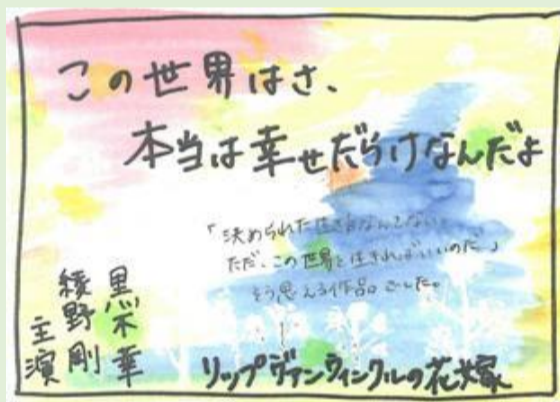 この世界はさ、
本当は幸せだらけなんだよ
「決められた生き方なんてない。
ただ、この世界を生きればいいのだ」
そう思える作品でした。
黒木華
綾野剛
主演
リップヴァンウィンクルの花嫁